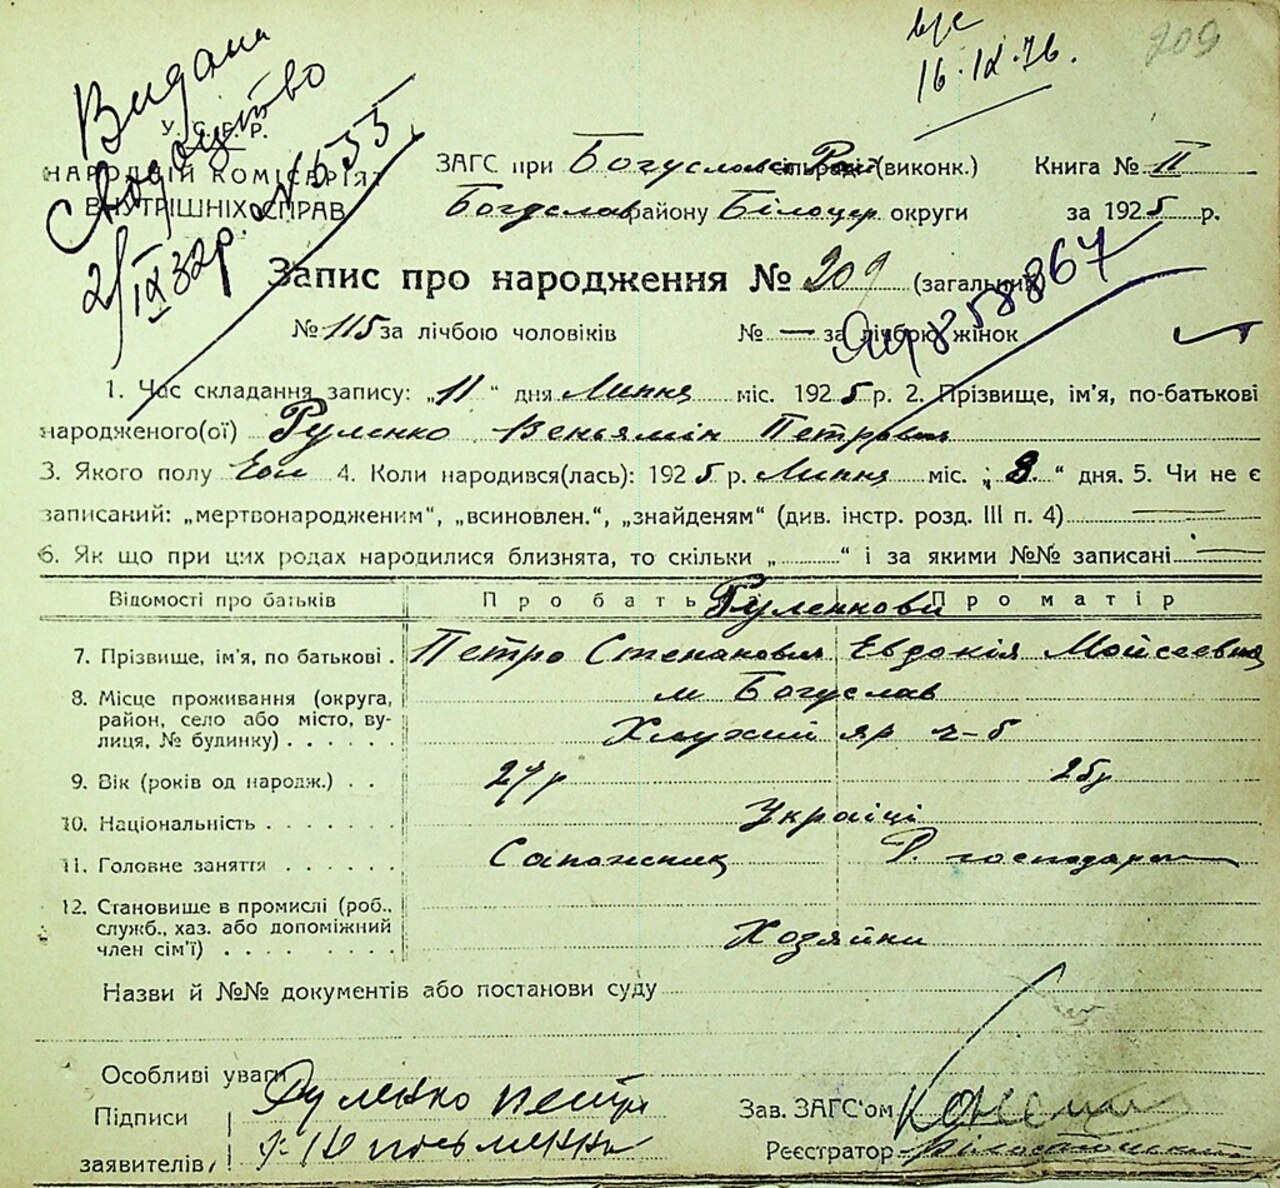 209
16.IX.76.
Видано
Свідоцтво
2/IX 32р. №533
У. С. Р. Р.
НАРОДНІЙ КОМІСАРІЯТ
ВНУТРІШНІХ СПРАВ
ЗАГС при Богуславськ Рай (виконк.) Книга № II
Богуслав району Білоцер округи за 1925 р.
Запис про народження № 209 (загальний)
858867
№ 115 за лічбою чоловіків № — за лічбою жінок
1. Час складання запису: „11“ дня Липня міс. 1925 р. 2. Прізвище, ім'я, по-батькові
народженого(ої) Руленко Веньямін Петрович
3. Якого полу Чол 4. Коли народився(лась): 1925 р. Липня міс. „8.“ дня. 5. Чи не є
записаний: „мертвонародженим“, „всиновлен.“, „знайденям“ (див. інстр. розд. III п. 4)
6. Як що при цих родах народилися близнята, то скільки „ “ і за якими №№ записані
Відомості про батьків Про батька Про матір
Руленкови
7. Прізвище, ім'я, по батькові . Петро Степанович Евдокія Мойсеевна
8. Місце проживання (округа, м Богуслав
район, село або місто, ву-
лиця, № будинку) . . . . . . яр ч-б
9. Вік (років од народж.) . . 27р 25р
10. Національність . . . . . . . Украінці
11. Головне заняття . . . . . . Сапожник Д. господарст
12. Становище в промислі (роб.,
служб., хаз. або допоміжний
член сім'ї) . . . . . . . . Хозяйки
Назви й №№ документів або постанови суду
Особливі уваги
Підписи Руленко петр
заявителів,
Зав. ЗАГС'ом
Реєстратор